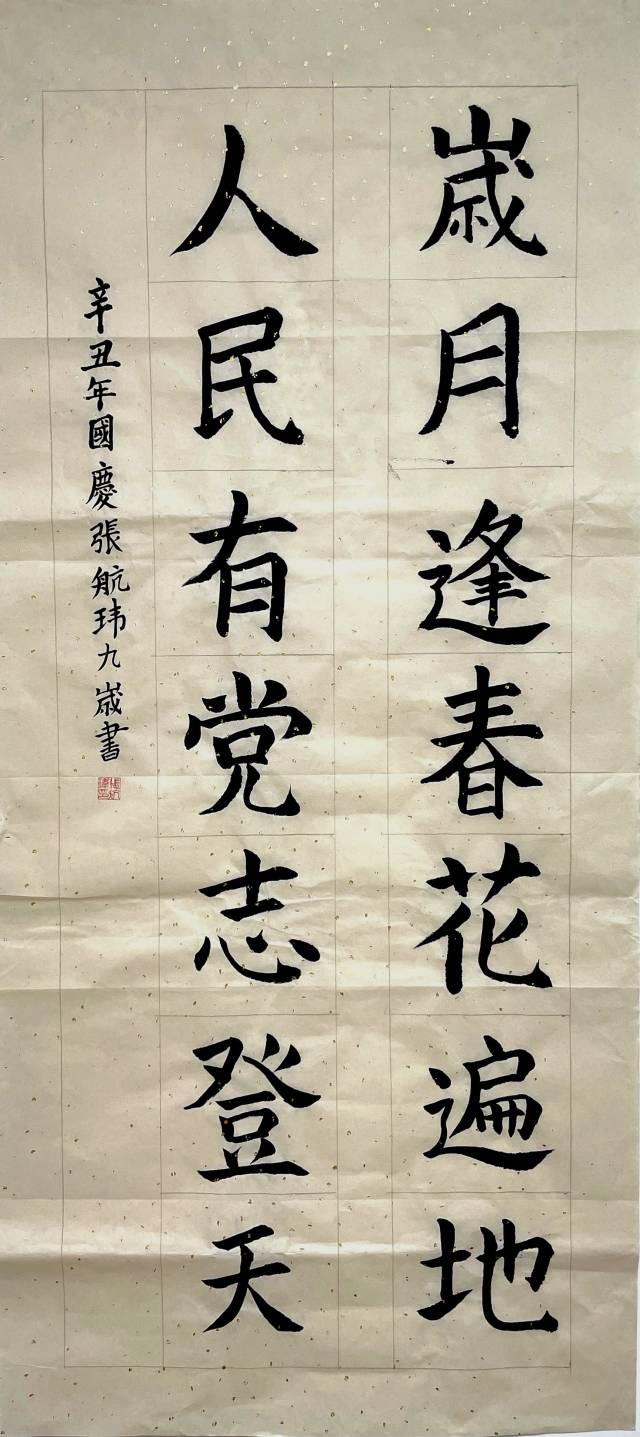 歳月逢春花遍地
人民有党志登天
辛丑年國慶張航玮九歳書